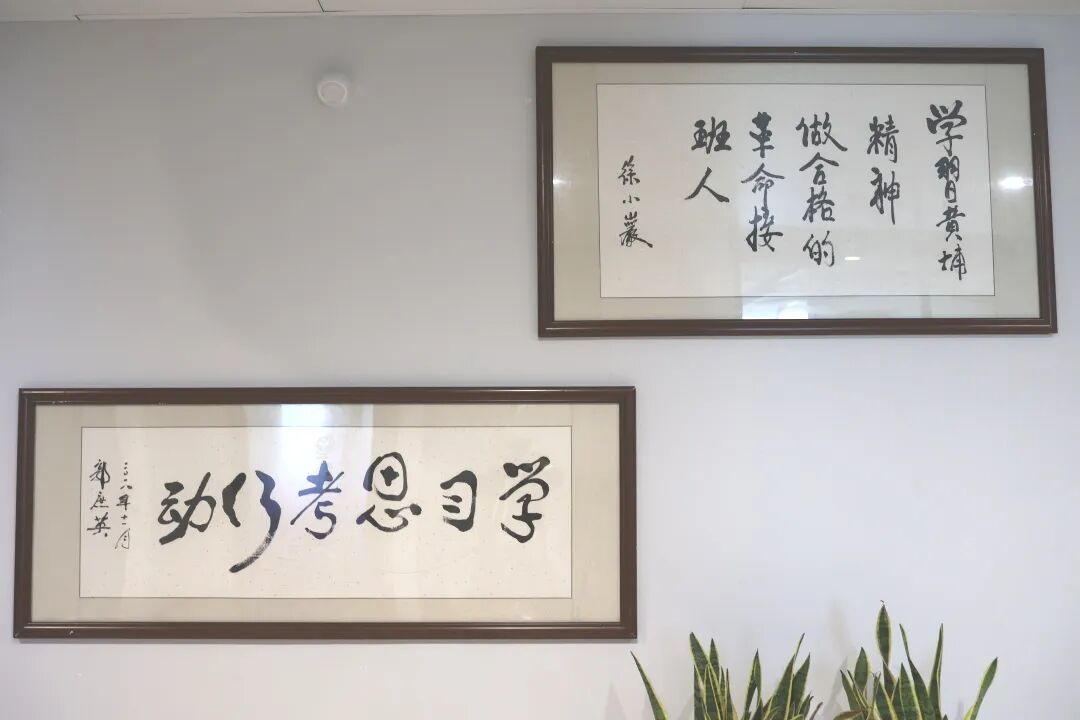 学習黄埔
精神
做合格的
革命接
班人
徐小巖
学习思考行动
二〇〇八年十一月
郭庶英